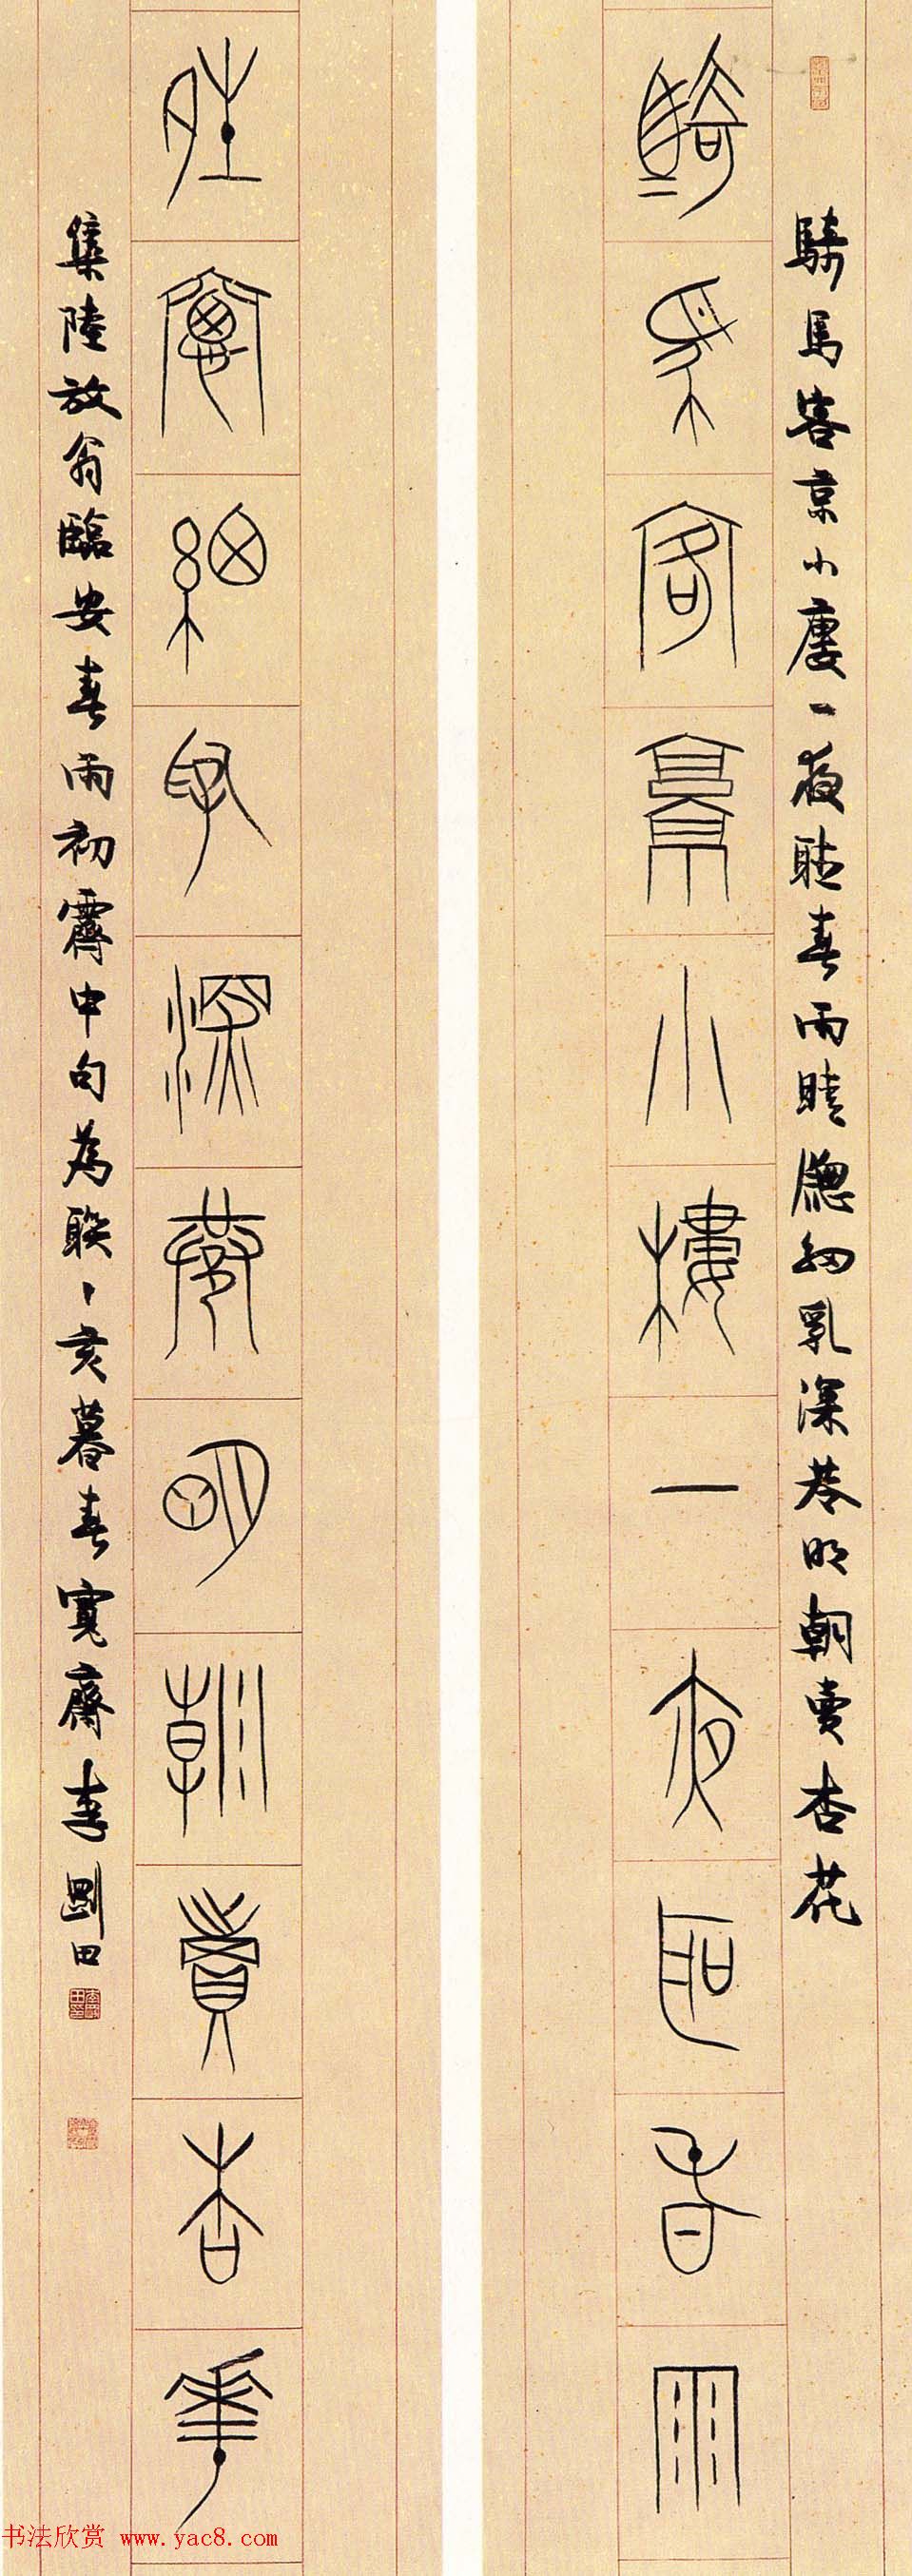 騎馬客京小樓一夜聽春雨晴牕細乳深巷明朝賣杏花
騎馬客京小樓一夜聽春雨
晴窗細乳深巷明朝賣杏華
集陸放翁臨安春雨初霽中句為聯丁亥暮春寬齋李剛田
书法欣赏 www.yac8.com